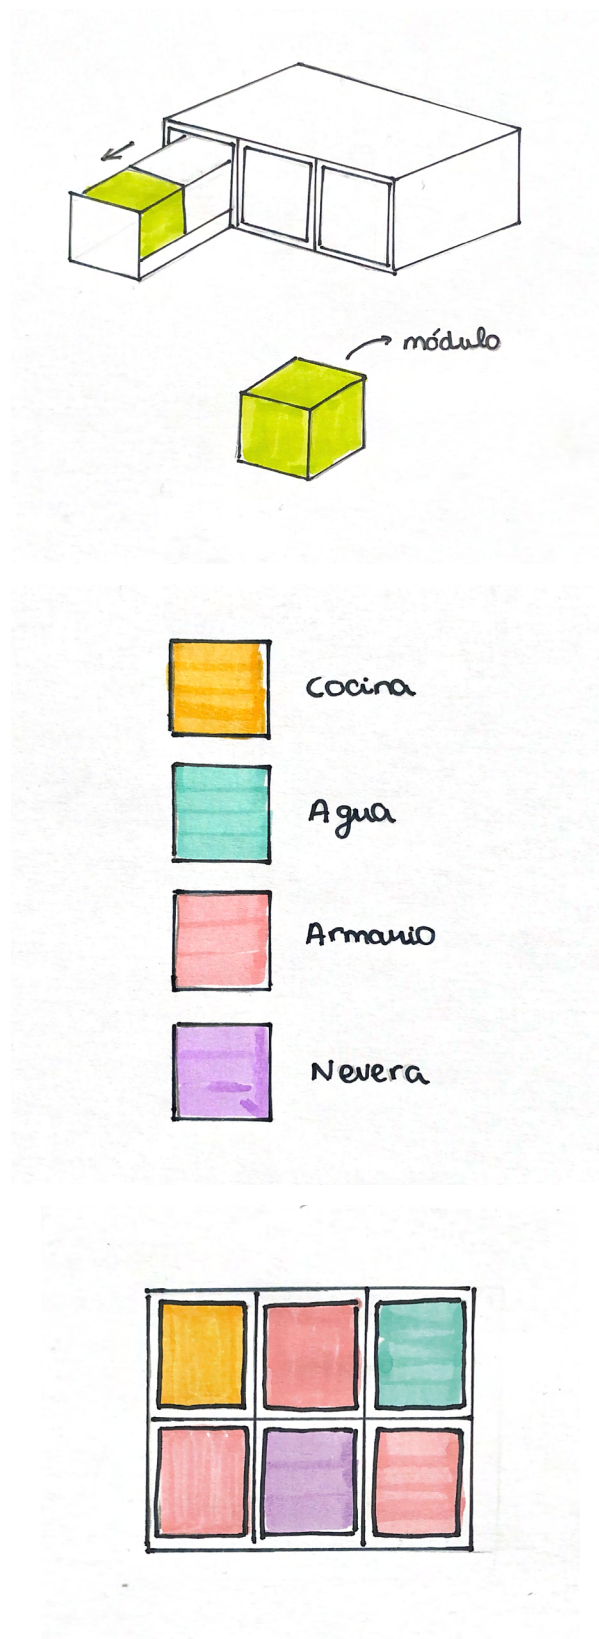 módulo
Cocina
Agua
Armario
Nevera